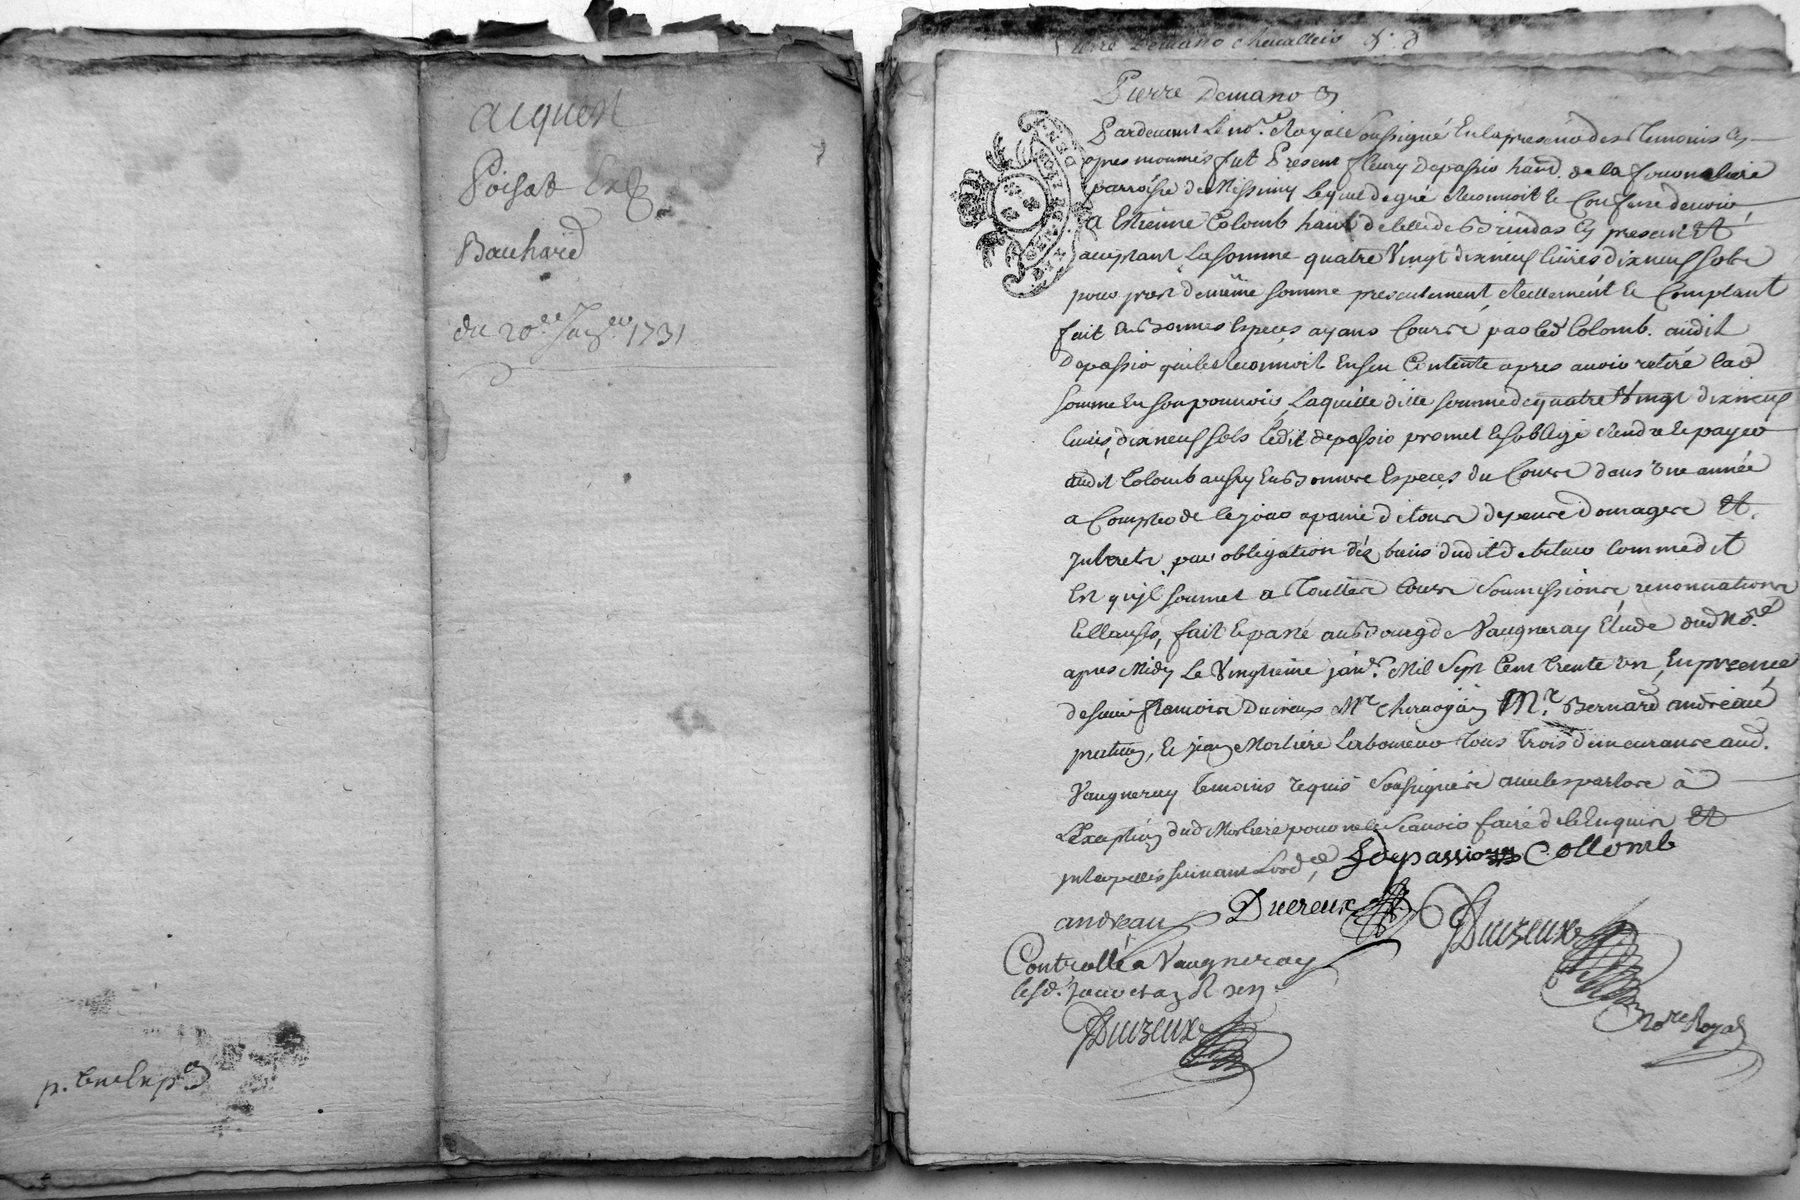 acquest
Poisat
Bauhard
du 20e Janver 1731
Pierre Demano
Pardevant Le nore. Royal Soussigné En la presence des Temoins Cy
apres nommés fut Present fleury Depassio habt. de la
parroisse de Messimy Lequel de gré Reconnoit et Confesse devoir
A Estienne Colomb habt de celle de Brindas Cy present Et
aceptant La somme quatre Vingt dixneuf livres dixneuf sols
pour prest de même somme presentement, Reellement et Comptant
fait En bonnes Especes ayans Cours par led Colomb. audit
Depassio qui le Reconnoit Et sen Contente apres avoir retiré lad
somme En son pouvoir, Laquelle ditte somme de quatre Vingt dixneuf
livres, dixneuf sols Ledit depassio promet Et soblige Rendre Et payer
audit Colomb aussy En bonnes Especes du Cours dans une année
a Compter de ce jour a peine de tous depens Domages Et
Interets par obligation des biens dudit debiteur Comme dit
Est qu'jl soumet a Touttes Cours Soumissions, renonciations
Et Clauses, fait Et passé au Bourg de Vaugneray Etude dud Nore.
apres Midy Le Vingtieme janv. Mil Sept Cent trente Un, En presence
de sieur françois Ducreux Mre Chirurgien Mr. Bernard andreau
praticien, Et jean Morliere Laboureur Tous Trois demeurants aud.
Vaugneray temoins requis Soussignés avec les parties à
L'Exception dud Morliere pour ne le Scavoir faire de ce Enquis Et
interpellés suivant Lord.ce, f depassio Collomb
andreau Ducreux Ducreux
Controllé a Vaugneray
Ducreux nore Royal